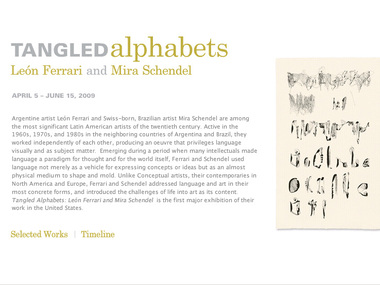 TANGLED alphabets
León Ferrari and Mira Schendel
APRIL 5 – JUNE 15, 2009
Argentine artist León Ferrari and Swiss-born, Brazilian artist Mira Schendel are among
the most significant Latin American artists of the twentieth century. Active in the
1960s, 1970s, and 1980s in the neighboring countries of Argentina and Brazil, they
worked independently of each other, producing an oeuvre that privileges language
visually and as subject matter. Emerging during a period when many intellectuals made
language a paradigm for thought and for the world itself, Ferrari and Schendel used
language not merely as a vehicle for expressing concepts or ideas but as an almost
physical medium to shape and mold. Unlike Conceptual artists, their contemporaries in
North America and Europe, Ferrari and Schendel addressed language and art in their
most concrete forms, and introduced the challenges of life into art as its content.
Tangled Alphabets: León Ferrari and Mira Schendel is the first major exhibition of their
work in the United States.
Selected Works | Timeline